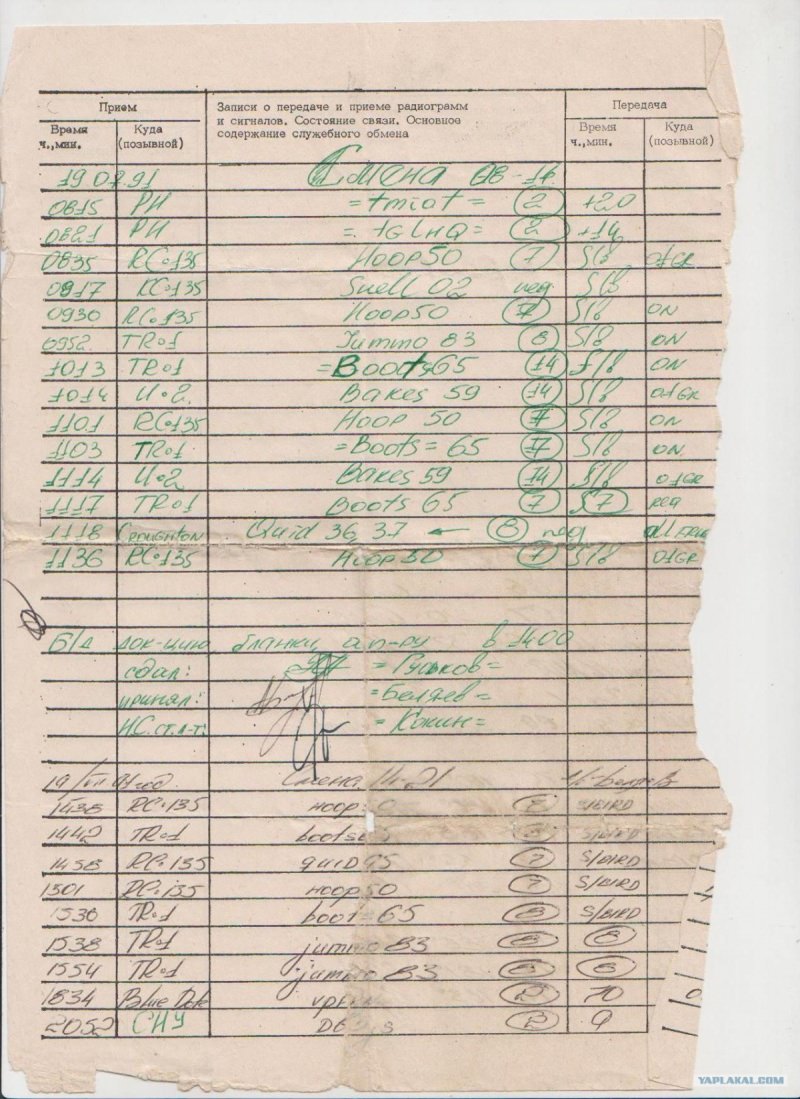 Прием Записи о передаче и приеме радиограмм Передача
и сигналов. Состояние связи. Основное
содержание служебного обмена
Время Куда Время Куда
ч.,мин. (позывной) ч.,мин. (позывной)
19 07 91 Смена 08-14
0815 РИ =tmiat= 2 +20
0821 РИ 2 +14
0835 RC-135 Hoop 50 7 S/B
0917 RC-135 Snell 02 neg S/B
0930 RC-135 Hoop 50 7 S/B ON
0952 TR-1 Jummo 83 8 S/B ON
1013 TR-1 =Boots 65 14 S/B ON
1014 U-2 Bakes 59 14 S/B
1101 RC-135 Hoop 50 7 S/B ON
1103 TR-1 =Boots= 65 17 S/B ON
1114 U-2 Bakes 59 14 S/B
1117 TR-1 Boots 65 7 S7 neg
1118 Croughton Quid 36, 37 ← 8 neg
1136 RC-135 Hoop 50 7 S/B
Б/д док-цию бланки, в 1400
сдал: =Гуськов=
принял: =Беляев=
Н.С.ст.л-т: =Кокин=
19/VII 91 год Смена 14-21
1438 RC-135 7 S/BIRD
1442 TR-1 8 S/BIRD
1458 RC-135 quid 95 7 S/BIRD
RC-135 hoop 50 7 S/BIRD
1530 TR-1 boots 65 8 S/BIRD
1538 TR-1 jummo 83 8 8
1554 TR-1 jummo 83 8 8
1834 2 70
2052 СНУ 2 9
YAPLAKAL.COM